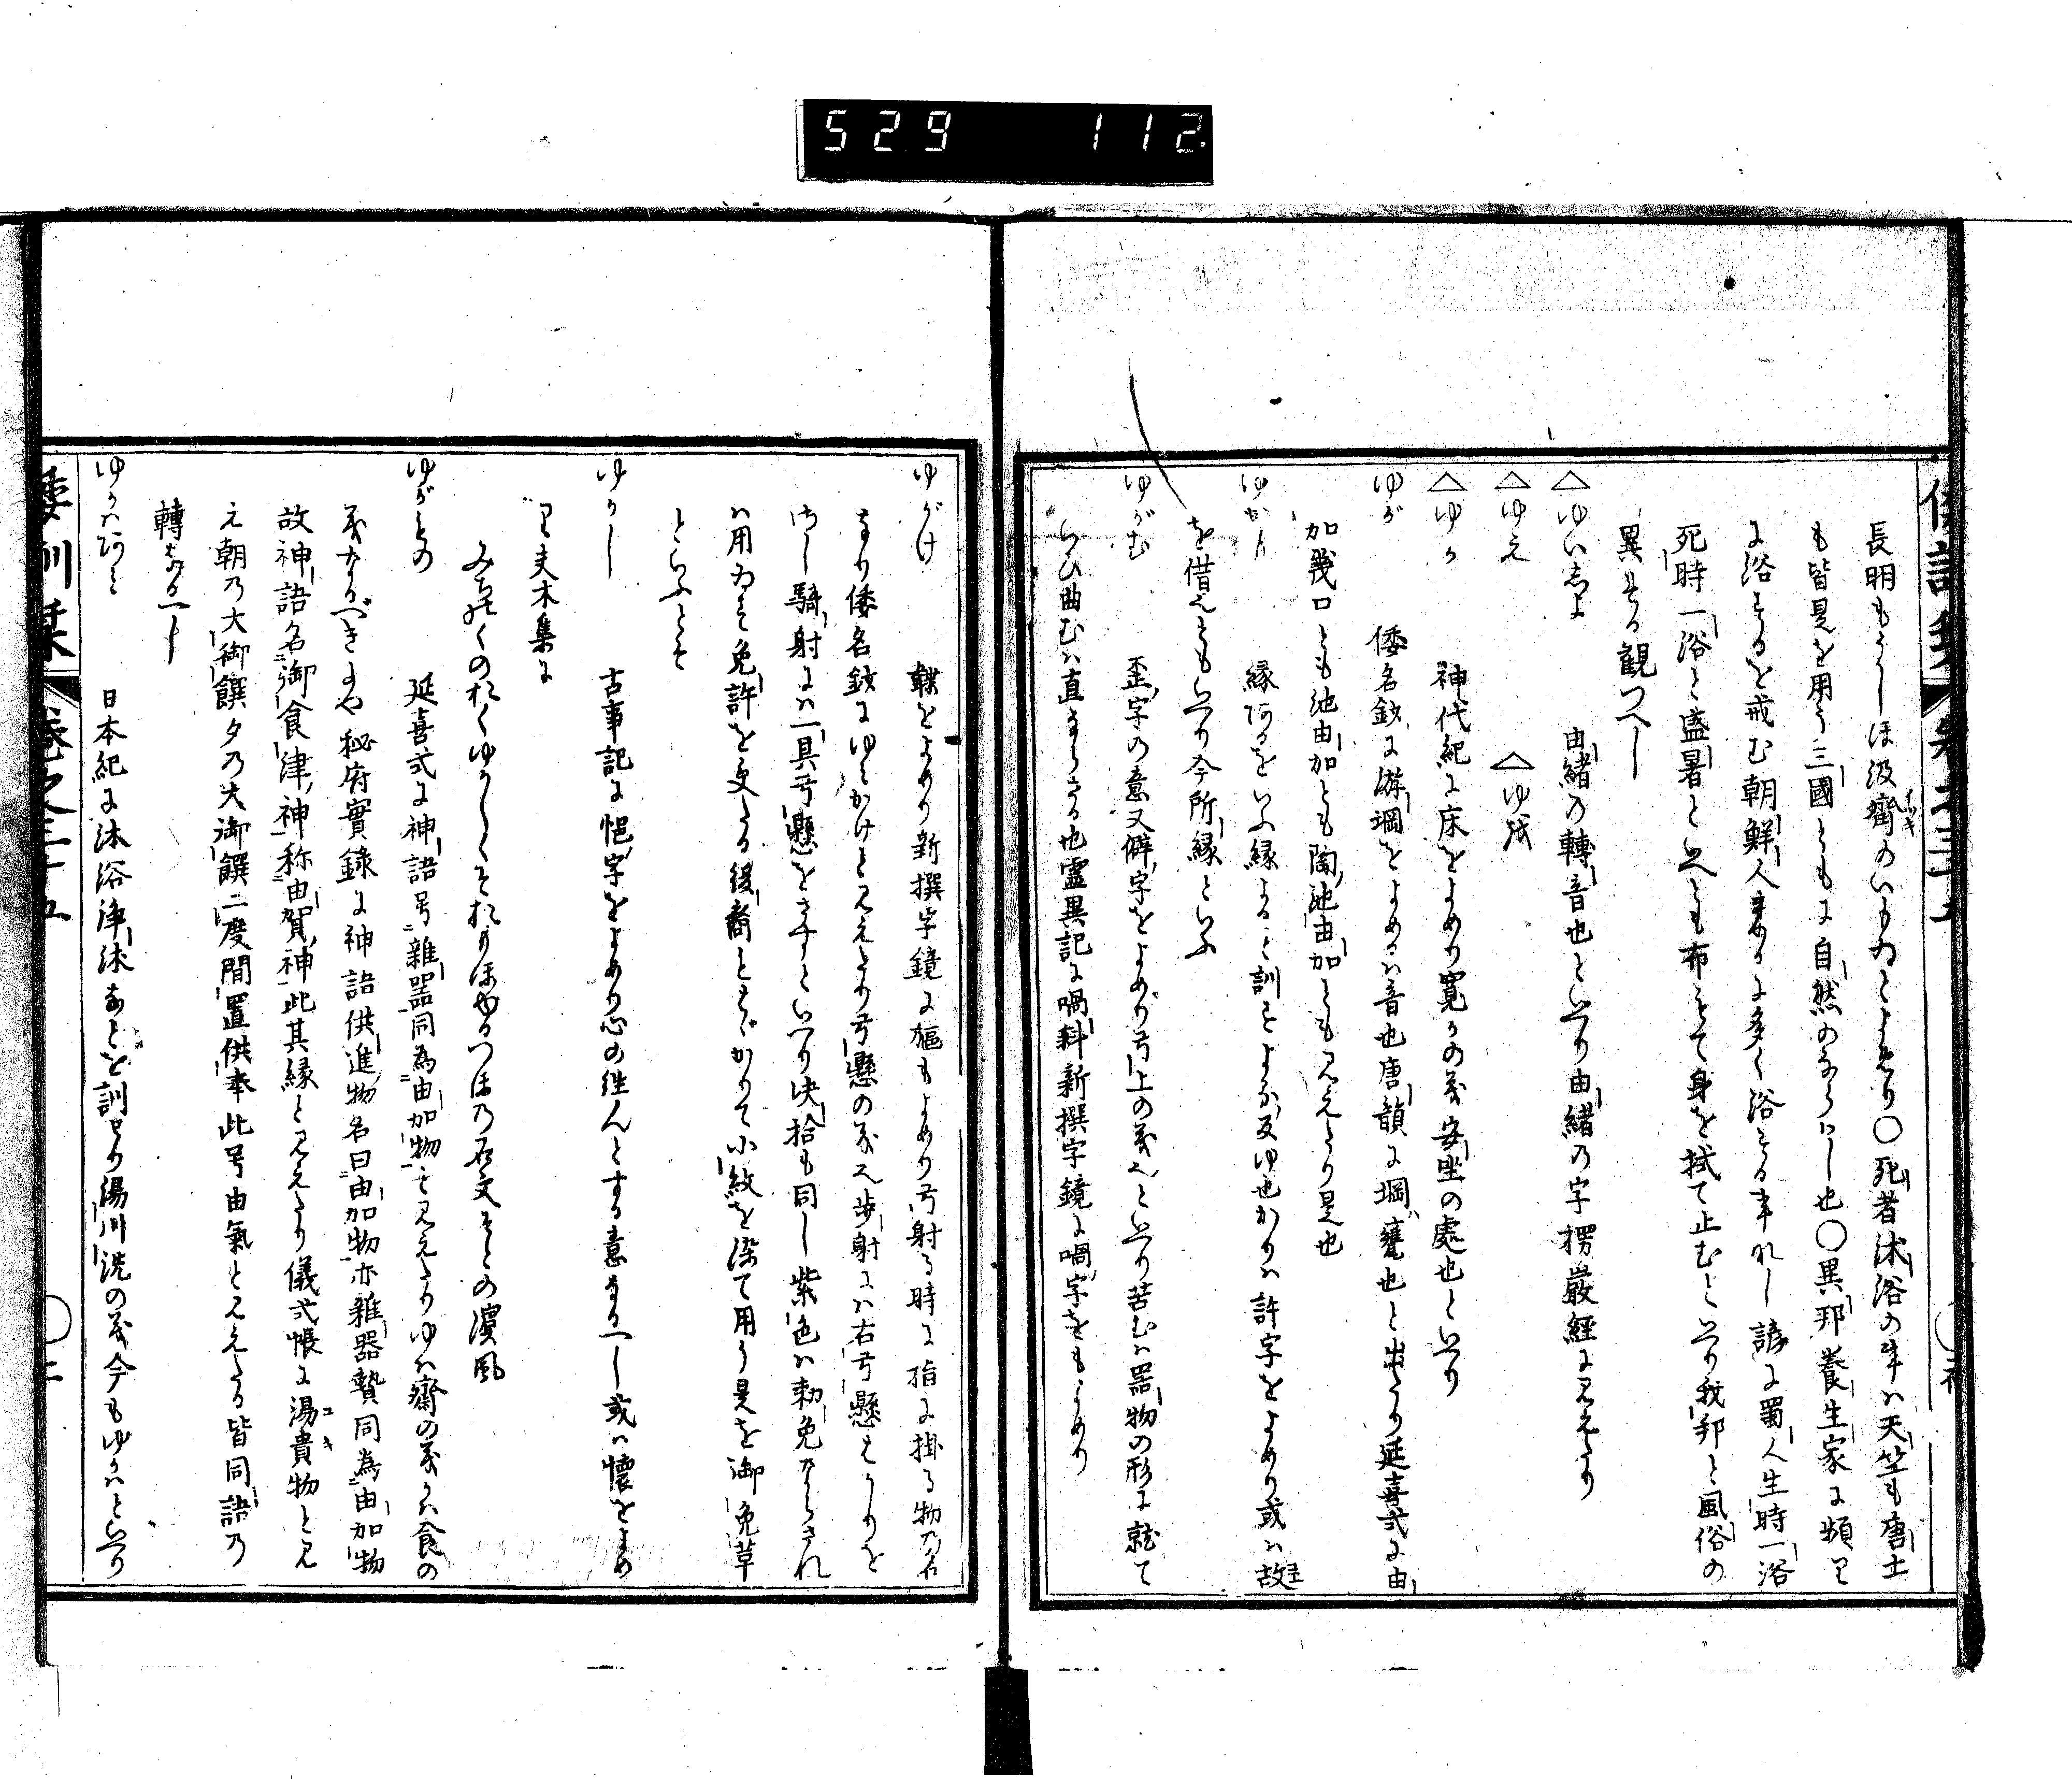 529 112
倭訓栞 巻之三十五
長明もうしほ汲齋のいもゐとよめり〇死者沐浴の事ハ天竺も唐土
も皆是を用う三國ともに自然のならハし也〇異邦養生家に頻り
に浴するを戒む朝鮮人来るに多く浴する事なし諺に蜀人生時一浴
死時一浴と盛暑といへとも布をもて身を拭て止むといへり我邦と風俗の
異なる観つへし
△ゆいしよ 由緒の轉音也といへり由緒の字楞嚴經に見えたり
△ゆえ △ゆゑ
△ゆか 神代紀に床をよめり寛かの義安坐の處也といへり
ゆが 倭名鈔に游堈をよめるハ音也唐韻に堈ハ甕也と出たり延喜式に由
加幾口とも池由加とも陶池由加とも見えたり是也
ゆかり 縁あるをいふ縁よると訓ずよる反ゆ也かりハ許字をよめり或ハ故
を借てもいへり今所縁といふ
ゆがむ 歪字の意又僻字をよめり弓上の義也といへり苦むハ器物の形に就て
いひ曲むハ直ならさる也靈異記に喎斜新撰字鏡に喎字をもよめり
ゆがけ 韘をよめり新撰字鏡に𢐹もよめり弓射る時に指に掛る物の名
なり倭名鈔にゆみかけと見えたり弓懸の義也歩射にハ右弓懸とて
さし騎射にハ一具弓懸をさすといへり决拾も同し紫色ハ勅免ならされ
ハ用ゐす免許を受たる後裔とてかりて小紋を染て用う是を御免草
といふとそ
ゆかし 古事記に悒字をよめり心の往んとする意なるへし或ハ懐をよめ
り夫木集に
みちのくのおくゆかしくそおもほゆるつほの石文そとの濱風
ゆがもの 延喜式に神語号雜器同為由加物と見えたりゆハ齋の義かハ食の
義なるべきにや秘府實錄に神語供進物名曰由加物亦雜器贄同為由加物
故神語名御食津神称由賀神此其縁と見えたり儀式帳に湯貴物と見
え朝乃大御饌夕乃大御饌二度間置供奉此号由氣と見えたる皆同語の
轉なるへし
ゆかはあみ 日本紀に沐浴浄沐なとを訓せり湯川洗の義今もゆかハといへり
倭訓栞 巻之三十五 〇二